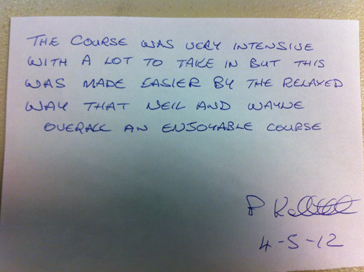 THE COURSE WAS VERY INTENSIVE
WITH A LOT TO TAKE IN BUT THIS
WAS MADE EASIER BY THE RELAXED
WAY THAT NEIL AND WAYNE
OVERALL AN ENJOYABLE COURSE
P
4-5-12